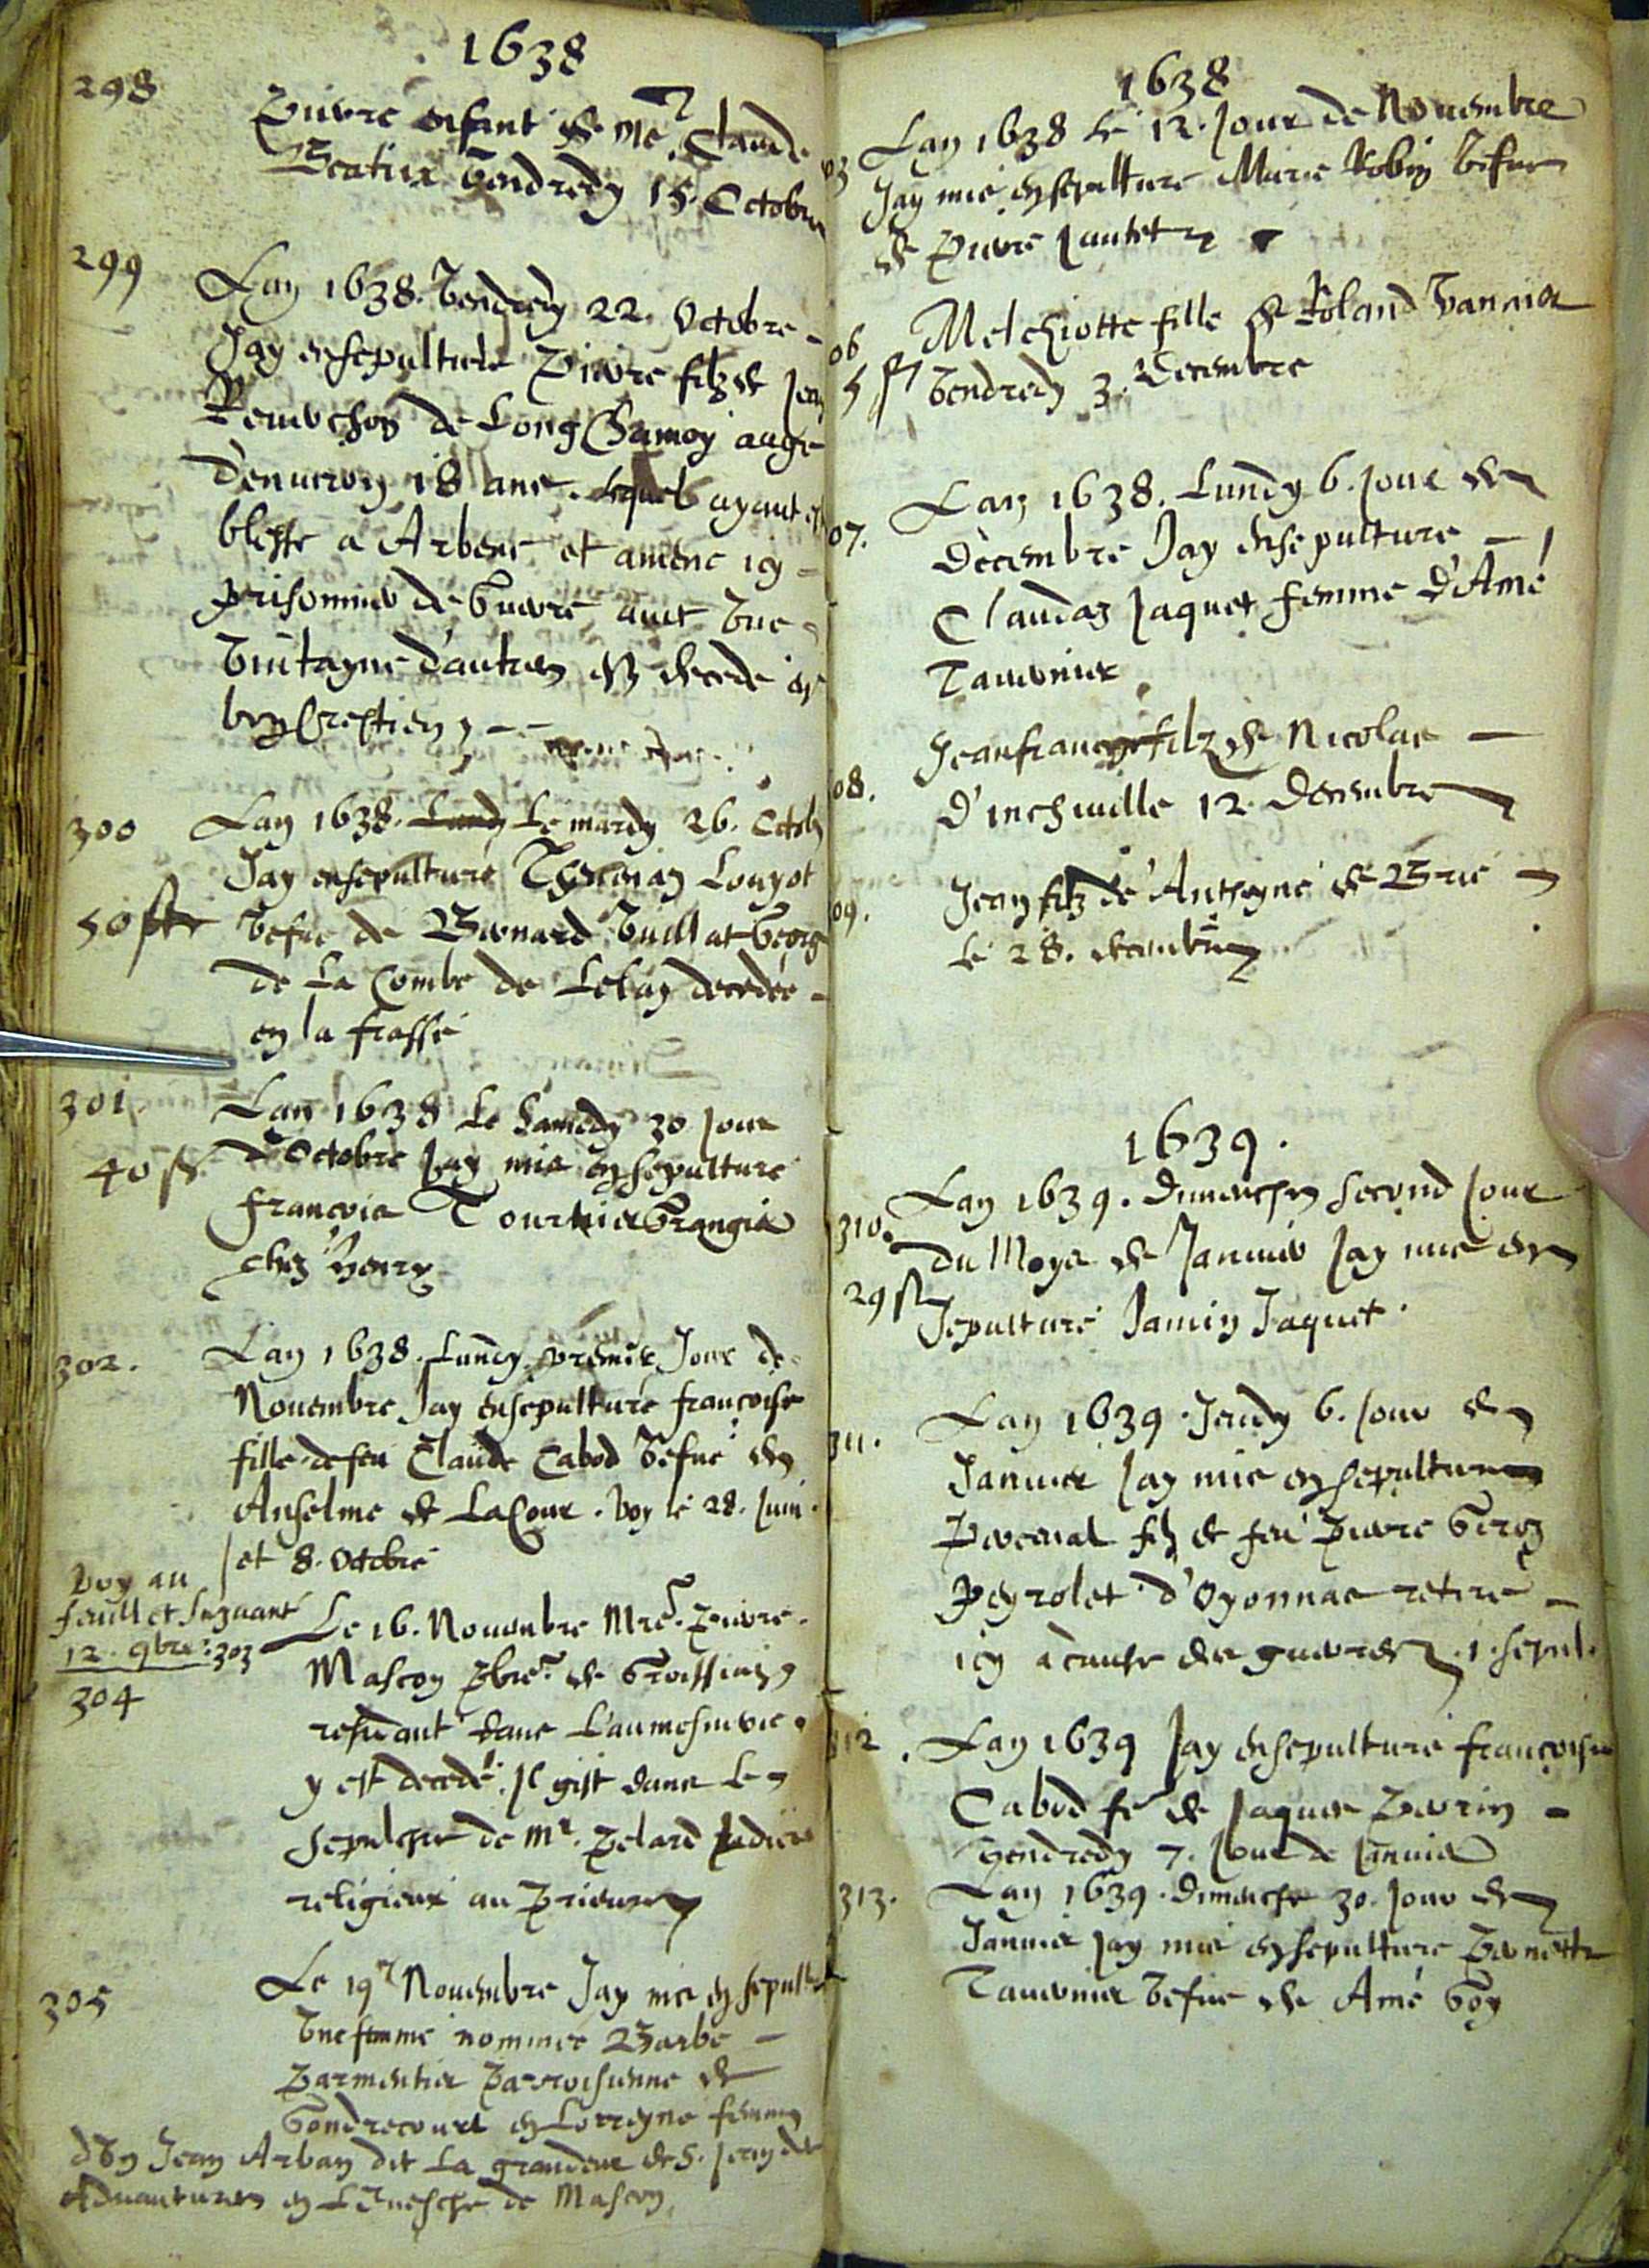 1638
298
Pierre enfant de Me. Claude
vendredy 15. Octobre
299
Lan 1638. Vendredy 22. Octobre
Jay ensepulturé Pierre filz de Jean
de Long Chamoy aagé
d'environ 18 ans. lequel ayant esté
blessé a Arbent et amené icy
prisonnier de guerre avec une
vintayne d'autres est decedé en
bon Crestien
300
Lan 1638. Lundy Le mardy 26. Octob
Jay ensepulturé Louyot
50 ss
vefve de Bernard Vuillat
de La Combe de decedée
en la frasse
301.
Lan 1638 Le Samedy 30 Jour
40 ss
d'Octobre Jay mis en sepulture
Francois Tournier Grangier
chez Henry
302.
Lan 1638. Lundy premier Jour de
Novembre Jay ensepulturé françoise
fille de feu Claude Cabod vefve de
Anselme de LaCour. voy le 28. Juin
et 8. Octobre
voy au
feuillet suyvant
12. 9bre: 303
304
Le 16. Novembre Mre. Pierre
Mascon pbre. de Groissia
residant dans L'aumosnerie
y est decedé. Jl gist dans le
sepulchre de Mr. Pelard
religieux au Prieuré
305
Le 19 Novembre Jay mis en sepulture
Une femme nommée Barbe
Parmentier Parroisienne de
Gondrecourt en Lorreyne femme
d'Un Jean Arban dit La grandeur de S. Jean des
Adventures en L'Evesché de Mascon
1638
Lan 1638 Le 12. Jour de Novembre
03
Jay mis en sepulture Marie Robin vefve
de Pierre Jantet
06
Melchiotte fille de Roland Vannier
5 ss
Vendredy 3. Decembre
Lan 1638. Lundy 6. Jour de
07.
Decembre Jay ensepulturé
Claudaz Jaquet femme d'Amé
Tavernier
Jeanfrançois filz de Nicolas
08.
d'inchville 12. Decembre
Jean filz de Anthoyne de Brie
09.
le 28. decembre
1639.
Lan 1639. Dimenche second Jour
310.
du Moys de Janvier Jay mis en
29 ss
Sepulture Jamin Jaquet.
Lan 1639. Jeudy 6. Jour de
311.
Janvier Jay mis en sepulture
Perceval filz de feu Pierre
Peyrolet d'Oyonnas retiré
icy à cause des guerres. 1. sepul.
312.
Lan 1639 Jay ensepulturé françoise
Cabod fe de Jaques Perrin
Vendredy 7. Jour de Janvier
313.
Lan 1639. Dimenche 30. Jour de
Janvier Jay mis en sepulture Pernette
Tavernier vefve de Amé Goy